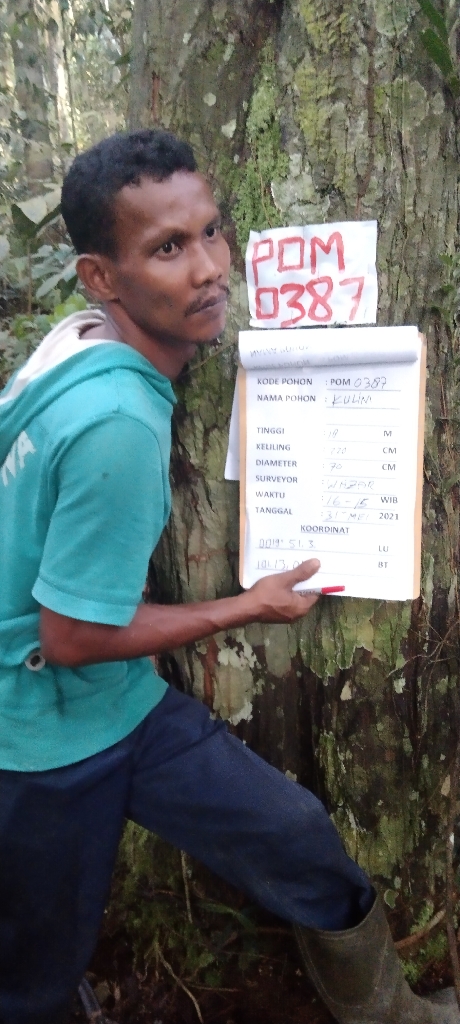 POM
0387
KODE POHON : POM 0387
NAMA POHON : KULIM
TINGGI : 18 M
KELILING : CM
DIAMETER : 70 CM
SURVEYOR :
WAKTU : 16-15 WIB
TANGGAL : 31-MEI 2021
KOORDINAT
LU
BT
NA